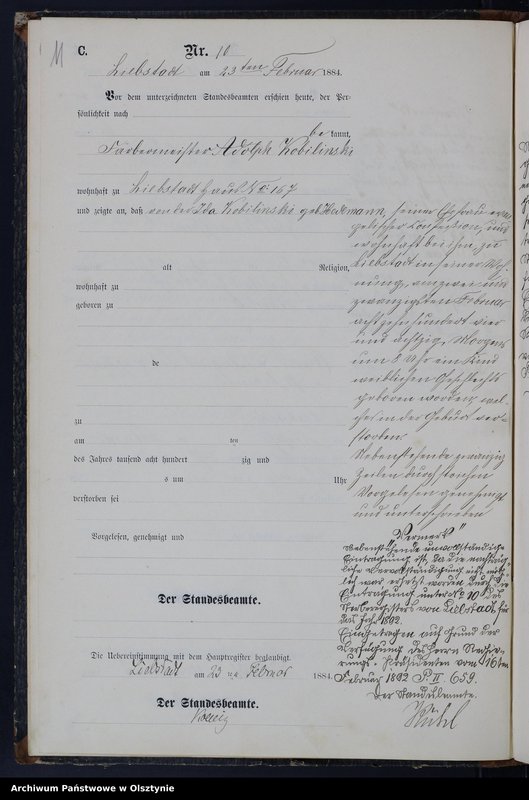 11
C.
Nr. 10
Liebstadt am 23ten Februar 1884.
Vor dem unterzeichneten Standesbeamten erschien heute, der Per-
sönlichkeit nach
be kannt,
Färbermeister Adolph Kobilinski
wohnhaft zu Liebstadt
und zeigte an, daß von der Ida Kobilinski geb. seiner Ehefrau evan
gelischer Konfession, und
wohnhaft bei ihm, zu
Liebstadt in seiner Woh-
alt Religion,
wohnhaft zu
nung, am zwei und
geboren zu
zwanzigsten Februar
achtzehnhundert vier
und achtzig, Morgens
um 8 Uhr ein Kind
de
weiblichen Geschlechts
geboren worden, wel-
ches in der Geburt ver-
storben.
zu
am ten
des Jahres tausend acht hundert zig und
s um Uhr
verstorben sei
Nebenstehende zwanzig
Zeilen durchstrichen
Vorgelesen, genehmigt
und unterschrieben
Vorgelesen, genehmigt und
"Vermerk"
Nebenstehende unvollständige
Eintragung ist, da die nachträg-
liche Vervollständigung nicht mög-
lich war ersetzt worden durch die
Eintragung unter No 10 des
Sterberegisters von Liebstadt für
das Jahr 1892.
Eingetragen auf Grund der
Verfügung des Herrn Regie-
rungs-Präsidenten vom 16ten
Februar 1892 P. II 659.
Der Standesbeamte.
Der Standesbeamte.
Die Uebereinstimmung mit dem Hauptregister beglaubigt.
Liebstadt am 23 ten Februar 1884.
Der Standesbeamte.
Archiwum Państwowe w Olsztynie